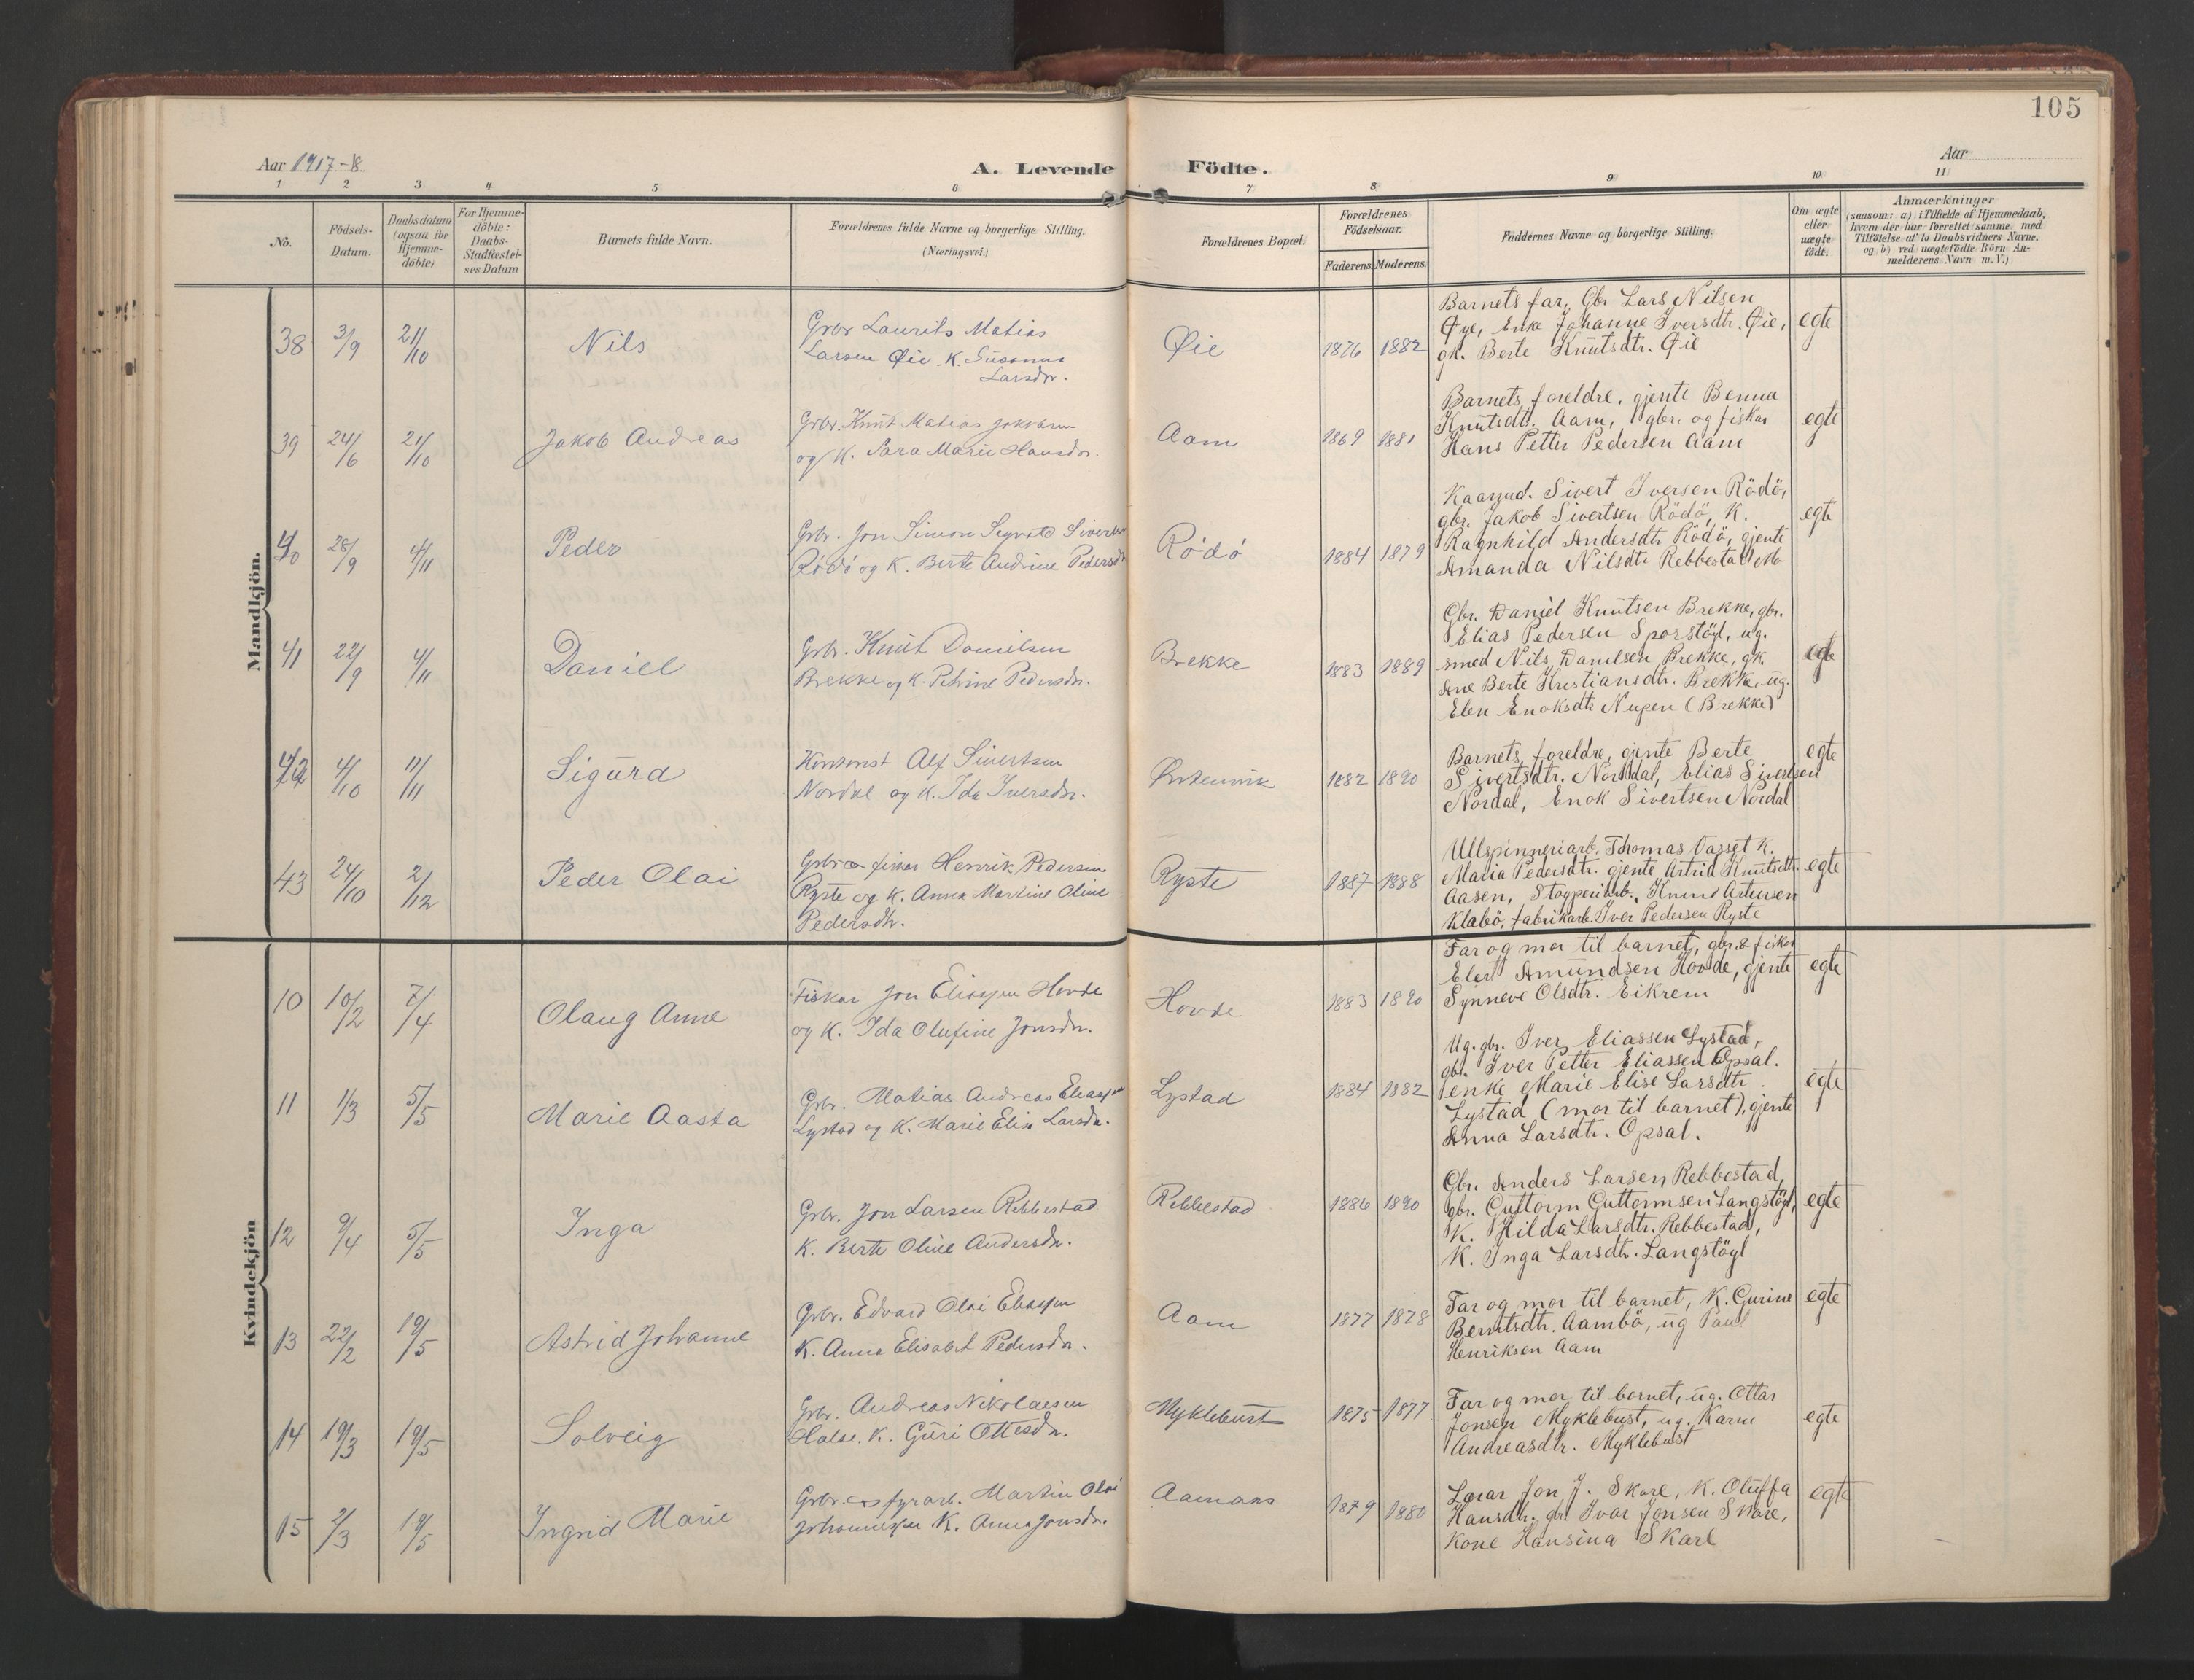 105
Aar 1917-8
A. Levende Födte.
Aar
1 2 3 4 5 6 7 8 9 10 11
No.
Födsels-
Datum.
Daabsdatum
(ogsaa for
Hjemme-
döbte)
For Hjemme-
döbte:
Daabs-
Stadfæstel-
ses Datum
Barnets fulde Navn.
Forældrenes fulde Navne og borgerlige Stilling.
(Næringsvei.)
Forældrenes Bopæl.
Forældrenes
Födselsaar.
Faderens. Moderens.
Faddernes Navne og borgerlige Stilling.
Om ægte
eller
uægte
födt.
Anmærkninger
(saasom: a) i Tilfælde af Hjemmedaab,
hvem der har forrettet samme, med
Tilföielse af to Daabsvidners Navne,
og b) ved uægtefödte Börn An-
melderens Navn m. V.)
Mandkjön.
38 3/9 21/10 Nils
Grbr Laurits Matias
Larsen Øie. K. Susanna
Larsdr.
Øie 1876 1882
Barnets far, Gbr Lars Nilsen
Øye, Enke Johanne Iversdtr. Øie,
gk. Berte Knutsdtr. Øie
egte
39 24/6 21/10 Jakob Andreas
Grbr. Knut Matias
og K. Sara Marie Hansdr.
Aam 1869 1881
Barnets foreldre, gjente Benna
Knutsdtr. Aam, gbr. og fiskar
Hans Petter Pedersen Aam
egte
40 28/9 4/11 Peder
Grbr. Jon Simon Sigvald Sivertsen
Rödö og K. Berte Andrine Pedersdr
Rödö 1884 1879
Sivert Iversen Rödö,
gbr. Jakob Sivertsen Rödö, K.
Ragnhild Andersdtr Rödö, gjente
Amanda Nilsdtr Rebbestad
egte
41 22/9 4/11 Daniel
Grbr. Knut Danielsen
Brekke og K. Petrine Pedersdr.
Brekke 1883 1889
Gbr. Daniel Knutsen Brekke, gbr.
Elias Pedersen Sporstöyl, ug.
smed Nils Danielsen Brekke, gk.
Ane Berte Kristiansdtr. Brekke, ug.
Elen Enoksdtr Nupen (Brekke)
egte
42 4/10 11/11 Sigurd
Kontorist Alf Sivertsen
Nordal og K. Ida Iversdr.
1882 1890
Barnets foreldre, gjente Berte
Sivertsdtr. Nordal, Elias Sivertsen
Nordal, Enok Sivertsen Nordal
egte
43 24/10 2/12 Peder Olai
Grbr og fiskar Henrik Pedersen
Ryste og K. Anna Martine Oline
Pedersdtr.
Ryste 1887 1888
Ullspinneriarb. Thomas Vasset K.
Maria Pedersdtr. gjente Astrid Knutsdtr.
Aasen, Støyperiarb. Knut Artursen
Klabö, fabrikarb. Iver Pedersen Ryste
egte
Kvindekjön
10 10/2 7/4 Olaug Anne
Fiskar Jon Eliassen Hovde
og K. Ida Olufine Jonsdr.
Hovde 1883 1890
Far og mor til barnet, gbr. & fiskar
Elert Amundsen Hovde, gjente
Synneve Olsdtr. Eikrem
egte
11 1/3 5/5 Marie Aasta
Grbr. Matias Andreas Eliassen
Lystad og K. Marie Elise Larsdr.
Lystad 1884 1882
Ug. gbr. Iver Eliassen Lystad,
gbr. Iver Petter Eliassen Opsal.
enke Marie Elise Larsdtr.
Lystad (mor til barnet), gjente
Anna Larsdtr. Opsal.
egte
12 9/4 5/5 Inga
Grbr. Jon Larsen Rebbestad
K. Berte Oline Andersdr.
Rebbestad 1886 1890
Gbr. Anders Larsen Rebbestad,
gbr. Guttorm Guttormsen Langstöyl,
K. Hilda Larsdtr. Rebbestad,
K. Inga Larsdtr. Langstöyl
egte
13 22/2 19/5 Astrid Johanne
Grbr. Edvard Olai Eliassen
K. Anna Elisabet Pedersdr.
Aam 1877 1878
Far og mor til barnet, K. Gurine
Berntsdtr. Aambö, ug Paul
Henriksen Aam
egte
14 19/3 19/5 Solveig
Grbr. Andreas Nikolaisen
Halse. K. Guri Ottesdr.
Myklebust 1875 1877
Far og mor til barnet, ug. Ottar
Jonsen Myklebust, ug. Karen
Andreasdtr. Myklebust
egte
15 2/3 19/5 Ingrid Marie
Grbr. og fyrarb. Martin Olai
Johannessen K. Anna Jonsdr.
Aamaas 1879 1880
Lærar Jon J. Skare, K. Oluffa
Hansdtr. gbr. Ivar Jonsen Skare,
Kone Hansina Skare
egte